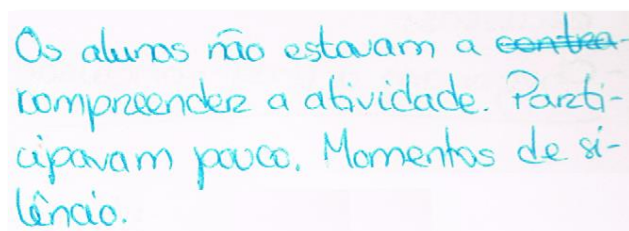 Os alunos não estavam a contra-
compreender a atividade. Parti-
cipavam pouco. Momentos de si-
lêncio.